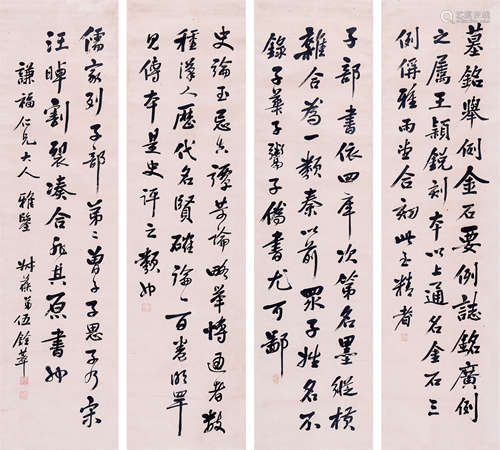 墓銘舉例金石要例誌銘廣例
之屬王穎銳刻本以上通名金石三
例偁雅雨堂合初此精者
子部書依四庫次第名墨縱橫
雜合為一類秦以前眾子姓名不
錄子華子鬻子偽書尤可鄙
史論至忌空譚苛論略舉博通者数
種漢人歷代名賢確論一百卷明單
見傳本是史評之類也
儒家列子部第二曾子子思子乃宋
汪晫割裂湊合非其原書也
謙福仁兄大人雅鑒
叔葆弟伍銓萃